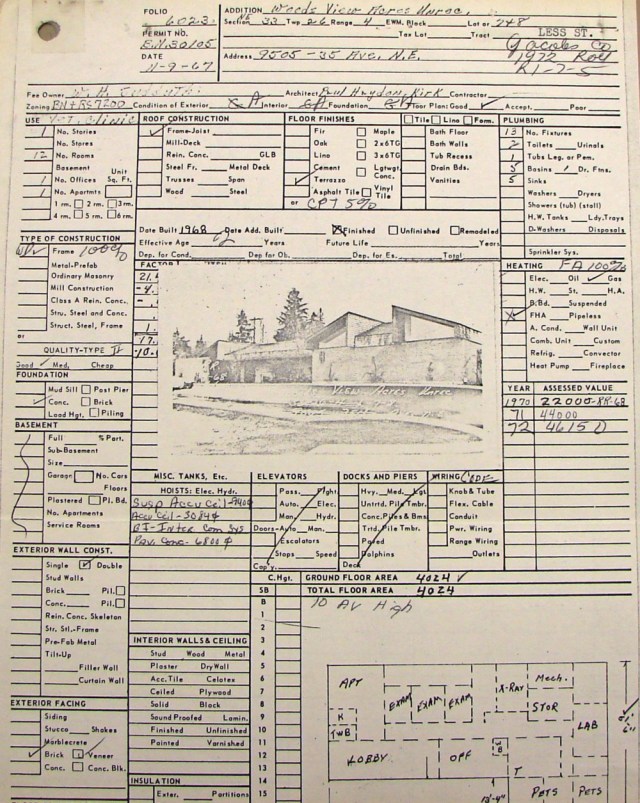 FOLIO 6023
PERMIT NO.
DATE 11-9-67
ADDITION Weeds View Acres Unrec.
NE
Section 33 Twp 26 Range 4 EWM, Block Lot or 7&8
Tax Lot Tract LESS ST.
Address 9505-35 Ave. N.E.
1972 Roll
R1-7-5
Fee Owner Architect Paul Hayden Kirk Contractor
Zoning Condition of Exterior Interior Foundation Floor Plan: Good Accept. Poor
USE Vet. Clinic
1 No. Stories
No. Stores
12 No. Rooms
Basement Unit
1 No. Offices Sq. Ft.
1 No. Apartmnts
1 rm. 2 rm. 3 rm.
4 rm. 5 rm. 6 rm.
ROOF CONSTRUCTION
Frame-Joist
Mill-Deck
Rein. Conc. GLB
Steel Fr. Metal Deck
Trusses Span
Wood Steel
FLOOR FINISHES
Fir Maple
Oak 2x6TG
Lino 3x6TG
Cement Lgtwgt. Conc.
Terrazzo
Asphalt Tile Vinyl Tile
or CPT 5%
Tile Lino Form.
Bath Floor
Bath Walls
Tub Recess
Drain Bds.
Vanities
PLUMBING
13 No. Fixtures
2 Toilets Urinals
1 Tubs Leg. or Pem.
5 Basins Dr. Ftns.
5 Sinks
Washers Dryers
Showers (tub) (stall)
H.W. Tanks Ldy.Trays
D-Washers Disposals
Sprinkler Sys.
Date Built 1968 Date Add. Built Finished Unfinished Remodeled
Effective Age Years Future Life Years
Dep. for Cond. Dep. for Ob. Dep. for Es. Total
TYPE OF CONSTRUCTION
Frame 100%
Metal-Prefab
Ordinary Masonry
Mill Construction
Class A Rein. Conc.
Stru. Steel and Conc.
Struct. Steel, Frame
or
QUALITY-TYPE II
Good Med. Cheap
FACTOR
HEATING FA 100%
Elec. Oil Gas
H.W. St. H.A.
B.Bd. Suspended
FHA Pipeless
A. Cond. Wall Unit
Comb. Unit Custom
Refrig. Convector
Heat Pump Fireplace
YEAR ASSESSED VALUE
1970 22000-RR-68
71 44000
72 46150
FOUNDATION
Mud Sill Post Pier
Conc. Brick
Load Hgt. Piling
BASEMENT
Full % Part.
Sub-Basement
Size
Garage No. Cars
Floors
Plastered Pl. Bd.
No. Apartments
Service Rooms
MISC. TANKS, Etc.
HOISTS: Elec. Hydr.
ELEVATORS
Pass. Frght.
Auto. Elec.
Man. Hydr.
Doors-Auto Man.
Escalators
Stops Speed
Cap'y.
DOCKS AND PIERS
Hvy. Med. Lgt.
Untrtd. Pile Tmbr.
Conc. Piles & Bms
Trtd. Pile Tmbr.
Paved
Dolphins
Deck
WIRING Code
Knob & Tube
Flex. Cable
Conduit
Pwr. Wiring
Range Wiring
Outlets
EXTERIOR WALL CONST.
Single Double
Stud Walls
Brick Pil.
Conc. Pil.
Rein. Conc. Skeleton
Str. Stl.-Frame
Pre-Fab Metal
Tilt-Up
Filler Wall
Curtain Wall
EXTERIOR FACING
Siding
Stucco Shakes
Marblecrete
Brick Veneer
Conc. Conc. Blk.
INTERIOR WALLS & CEILING
Stud Wood Metal
Plaster DryWall
Acc.Tile Celotex
Ceiled Plywood
Solid Block
SoundProofed Lamin.
Finished Unfinished
Painted Varnished
INSULATION
Exter. Partitions
C.Hgt. GROUND FLOOR AREA 4024
SB TOTAL FLOOR AREA 4024
B 10 Av High
1
2
3
4
5
6
7
8
9
10
11
12
13
14
15
APT
K
TWB
LOBBY
EXAM EXAM EXAM
OFF
X-RAY
Mech.
STOR
LAB
T
PETS PETS